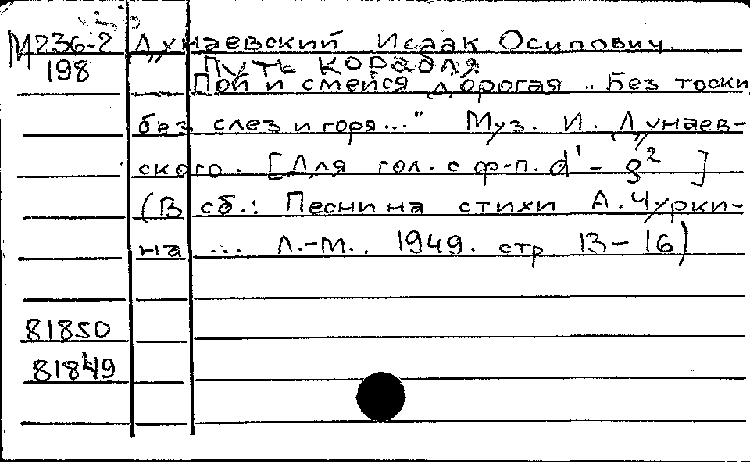 М236-2 Дунаевский Исаак Осипович
198 Путь корабля
Пой и смейся дорогая .. Без тоски,
без слез и горя..." Муз. И. Дунаев-
ского. [Для гол. с ф-п. d¹ - g² ]
(В сб.: Песни на стихи А. Чурки-
на ... Л.-М., 1949. стр 13-16)
81850
81849